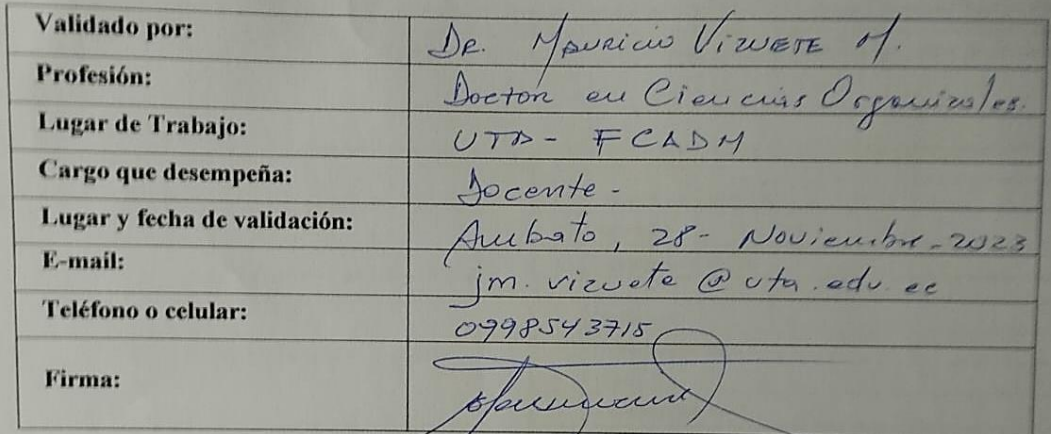 Validado por: Dr. Mauricio Vizuete M.
Profesión: Doctor en Ciencias Organizales.
Lugar de Trabajo: UTA - FCADM
Cargo que desempeña: Docente -
Lugar y fecha de validación: Ambato, 28 - Noviembre - 2023
E-mail: jm.vizuete@uta.edu.ec
Teléfono o celular: 0998543715
Firma: